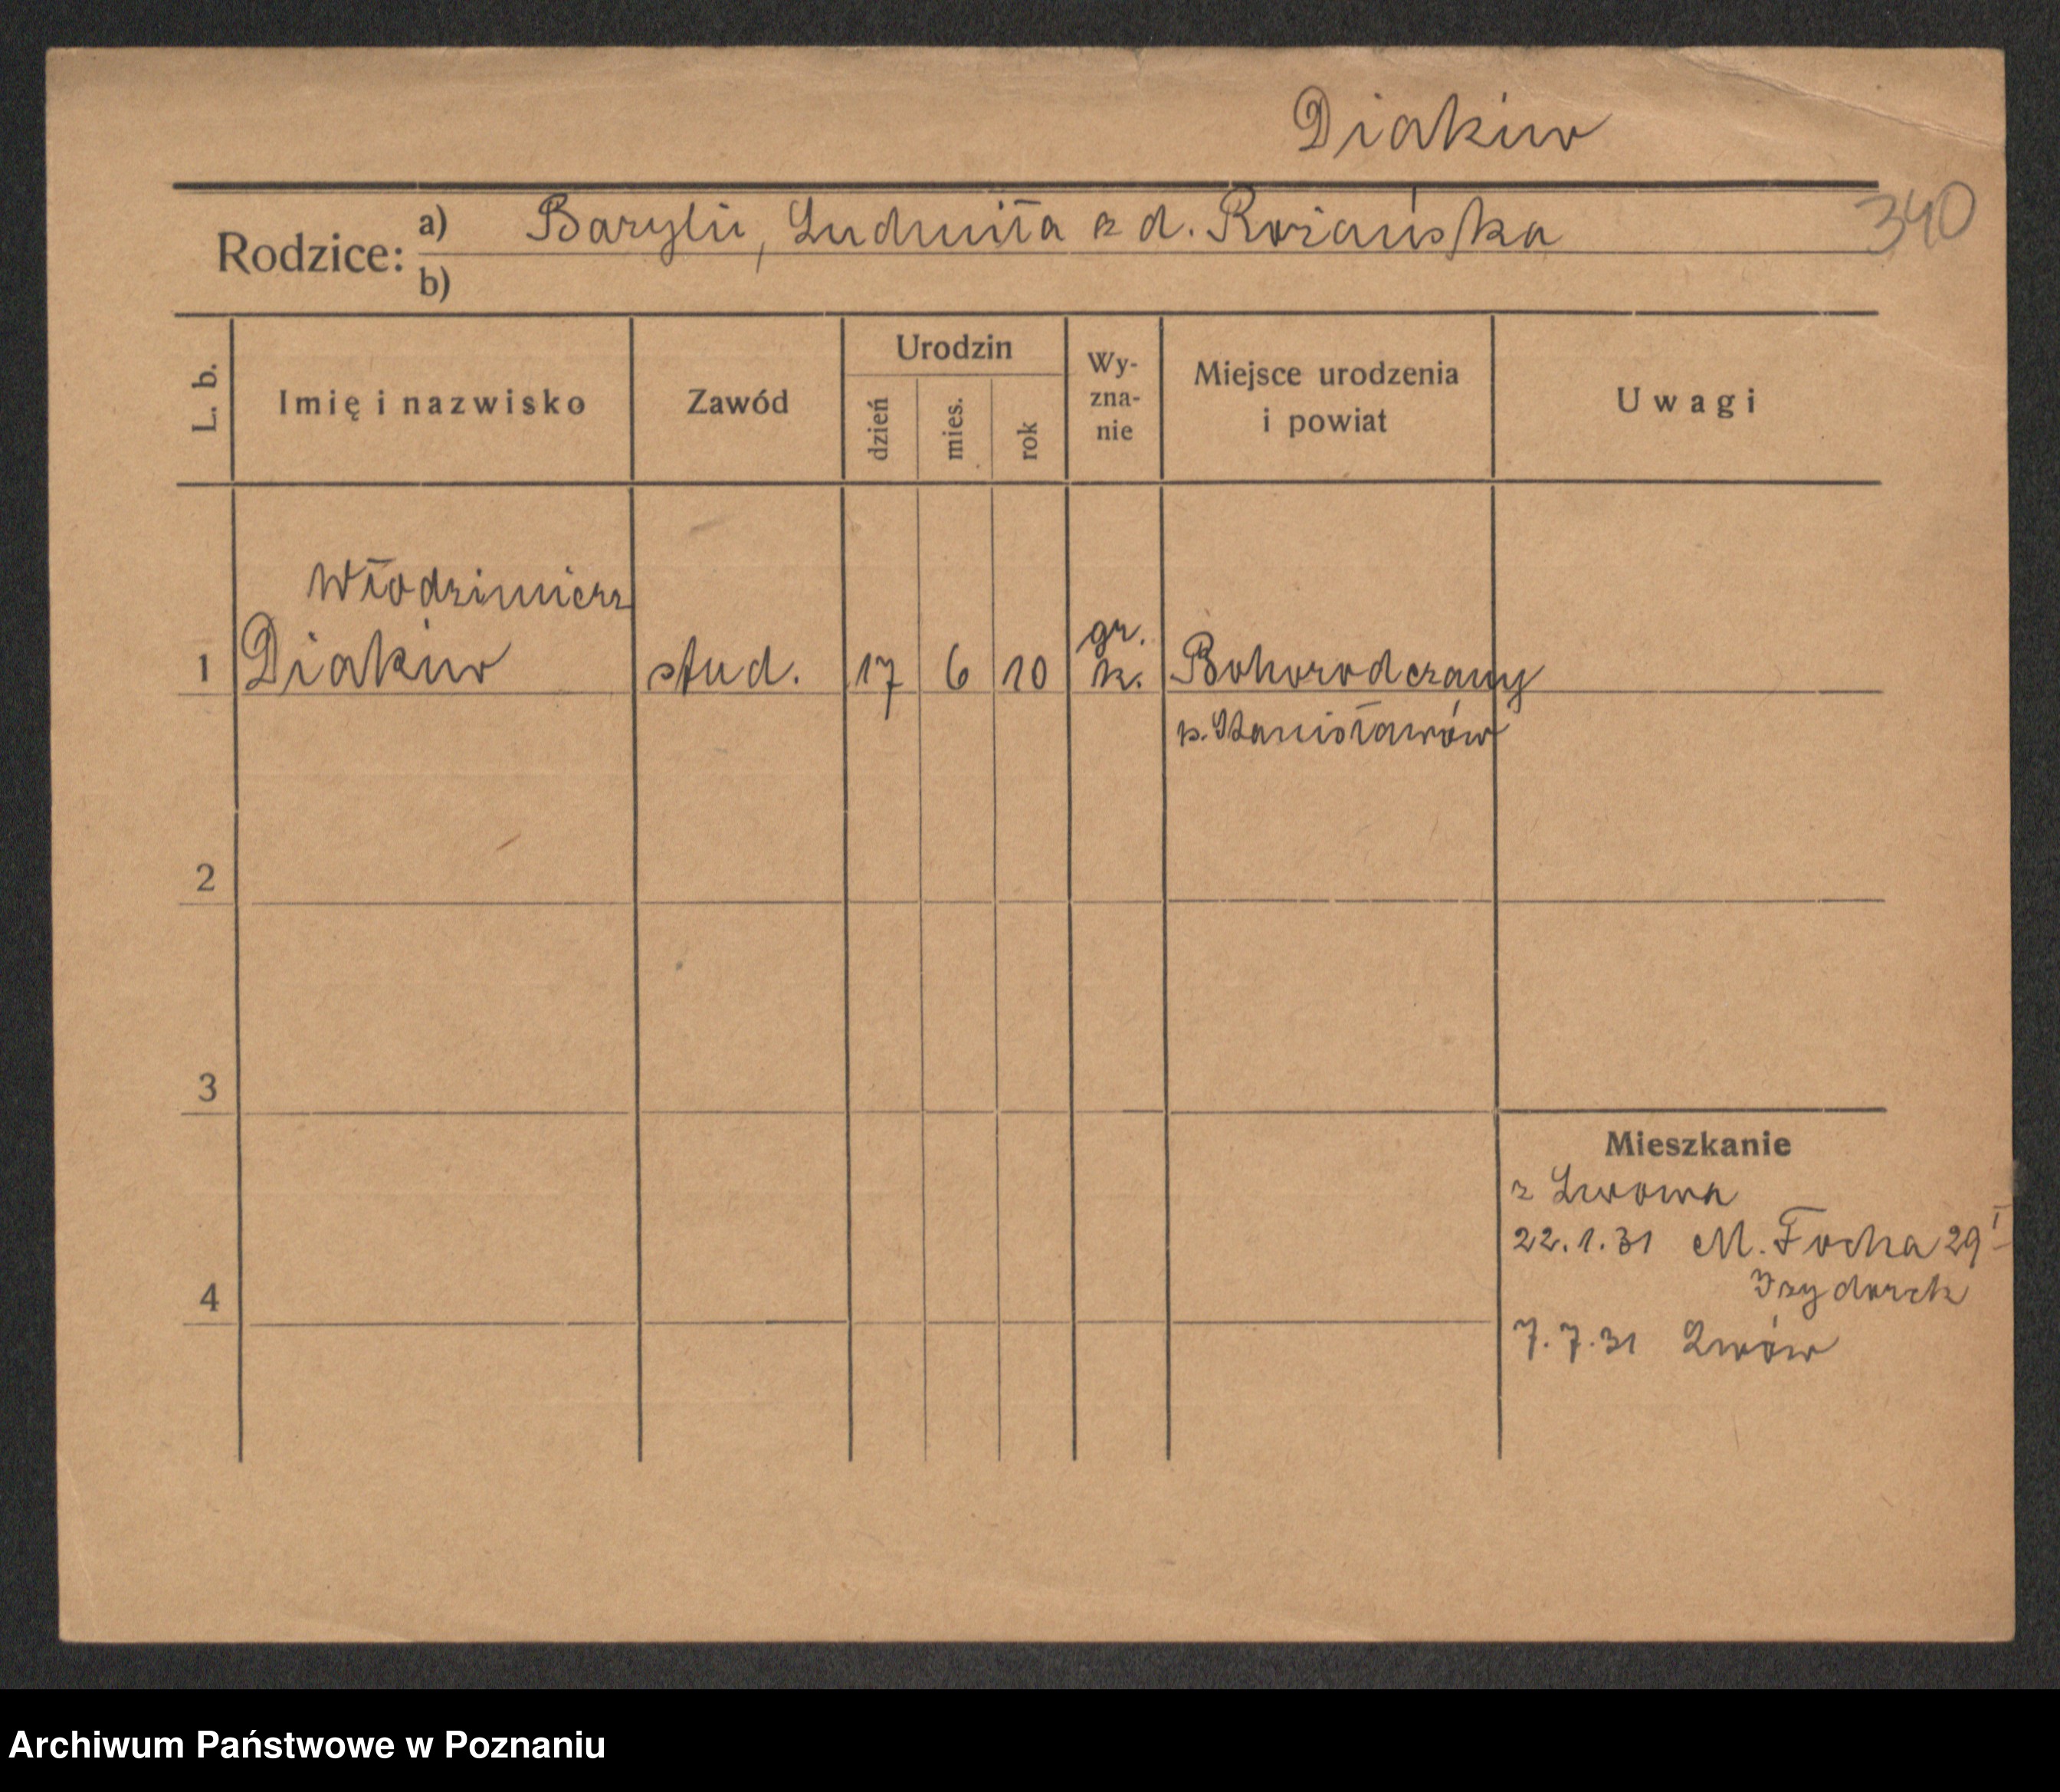 Diakiw
Rodzice: a) Baryli, Ludmiła z d. Roźańska 340
b)
L. b. Imię i nazwisko Zawód Urodzin dzień mies. rok Wy-zna-nie Miejsce urodzenia i powiat Uwagi
Włodzimierz
1 Diakiw stud. 17 6 10 gr. k. Bohorodczany
p. Stanisławów
2
3
Mieszkanie
z Lwowa
22.1.31 M. Focha 29 I
4 Izydorek
7.7.31 Lwów
Archiwum Państwowe w Poznaniu